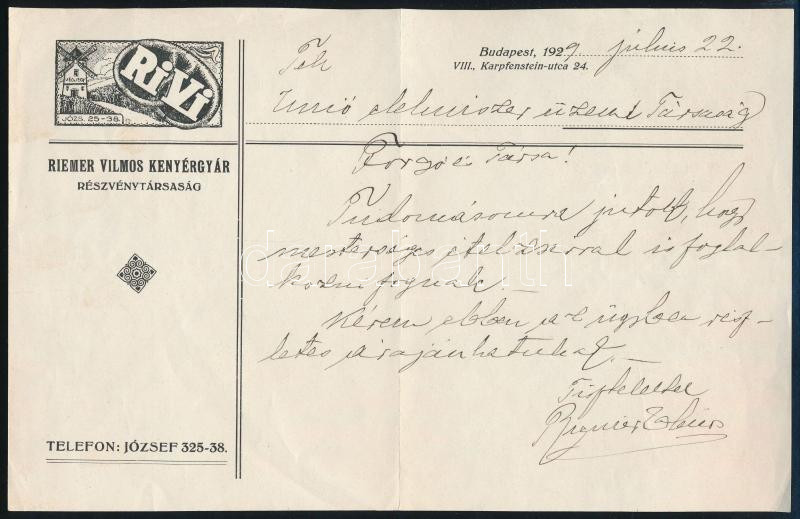 RiVi
JÓZS. 25-38.
RIEMER VILMOS KENYÉRGYÁR
RÉSZVÉNYTÁRSASÁG
TELEFON: JÓZSEF 325-38.
Budapest, 1929 július 22.
VIII., Karpfenstein-utca 24.
Tek
Unió élelmiszer üzemi Társaság
Forgó és Társa!
Tudomásomra jutott, hogy
mesterséges ételzsírral is foglal-
kozni fognak.
Kérem ebben az ügyben rész-
letes árajánlatukat.
Tisztelettel